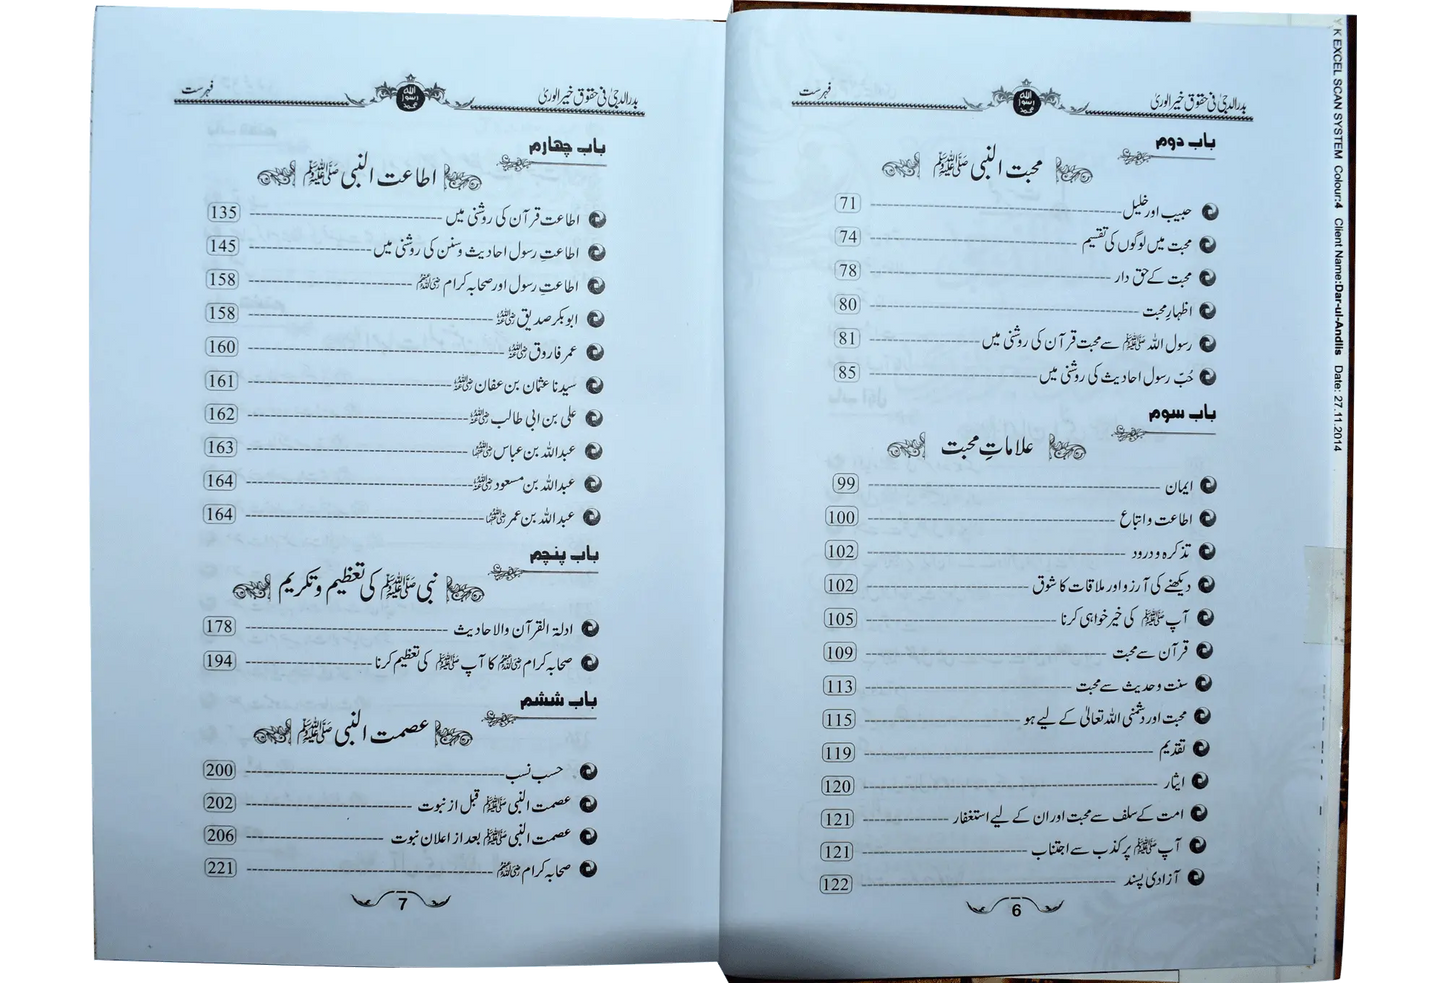 بدر الدجیٰ فی حقوق خیر الوریٰ فہرست
باب دوم
محبت النبی ﷺ
حبیب اور خلیل 71
محبت میں لوگوں کی تقسیم 74
محبت کے حق دار 78
اظہارِ محبت 80
رسول اللہ ﷺ سے محبت قرآن کی روشنی میں 81
حُبّ رسول احادیث کی روشنی میں 85
باب سوم
علاماتِ محبت
ایمان 99
اطاعت و اتباع 100
تذکرہ و درود 102
دیکھنے کی آرزو اور ملاقات کا شوق 102
آپ ﷺ کی خیر خواہی کرنا 105
قرآن سے محبت 109
سنت و حدیث سے محبت 113
محبت اور دشمنی اللہ تعالیٰ کے لیے ہو 115
تقدیم 119
ایثار 120
امت کے سلف سے محبت اور ان کے لیے استغفار 121
آپ ﷺ پر کذب سے اجتناب 121
آزادی پسند 122
6
بدر الدجیٰ فی حقوق خیر الوریٰ فہرست
باب چہارم
اطاعت النبی ﷺ
اطاعت قرآن کی روشنی میں 135
اطاعتِ رسول احادیث و سنن کی روشنی میں 145
اطاعتِ رسول اور صحابہ کرام رضی اللہ عنہم 158
ابوبکر صدیق رضی اللہ عنہ 158
عمر فاروق رضی اللہ عنہ 160
سیدنا عثمان بن عفان رضی اللہ عنہ 161
علی بن ابی طالب رضی اللہ عنہ 162
عبداللہ بن عباس رضی اللہ عنہما 163
عبداللہ بن مسعود رضی اللہ عنہ 164
عبداللہ بن عمر رضی اللہ عنہما 164
باب پنجم
نبی ﷺ کی تعظیم و تکریم
ادلۃ القرآن والاحادیث 178
صحابہ کرام رضی اللہ عنہم کا آپ ﷺ کی تعظیم کرنا 194
باب ششم
عصمت النبی ﷺ
حسب نسب 200
عصمت النبی ﷺ قبل از نبوت 202
عصمت النبی ﷺ بعد از اعلان نبوت 206
صحابہ کرام رضی اللہ عنہم 221
7
Y K EXCEL SCAN SYSTEM Colour:4 Client Name:Dar-ul-Andlis Date: 27.11.2014